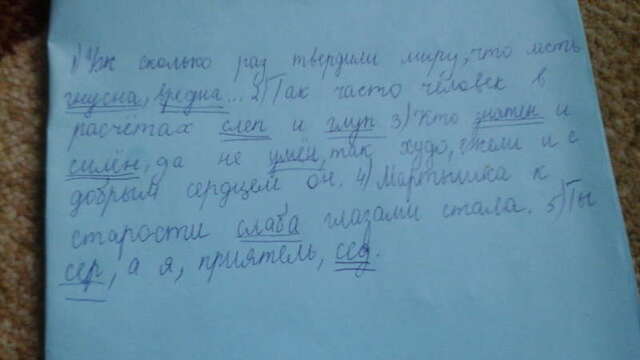 1) Уж сколько раз твердили миру, что лесть
гнусна, вредна... 2) Так часто человек в
расчётах слеп и глуп 3) Кто знатен и
силён, да не умён, так худо, ежели и с
добрым сердцем он. 4) Мартышка к
старости слаба глазами стала. 5) Ты
сер, а я, приятель, сед.